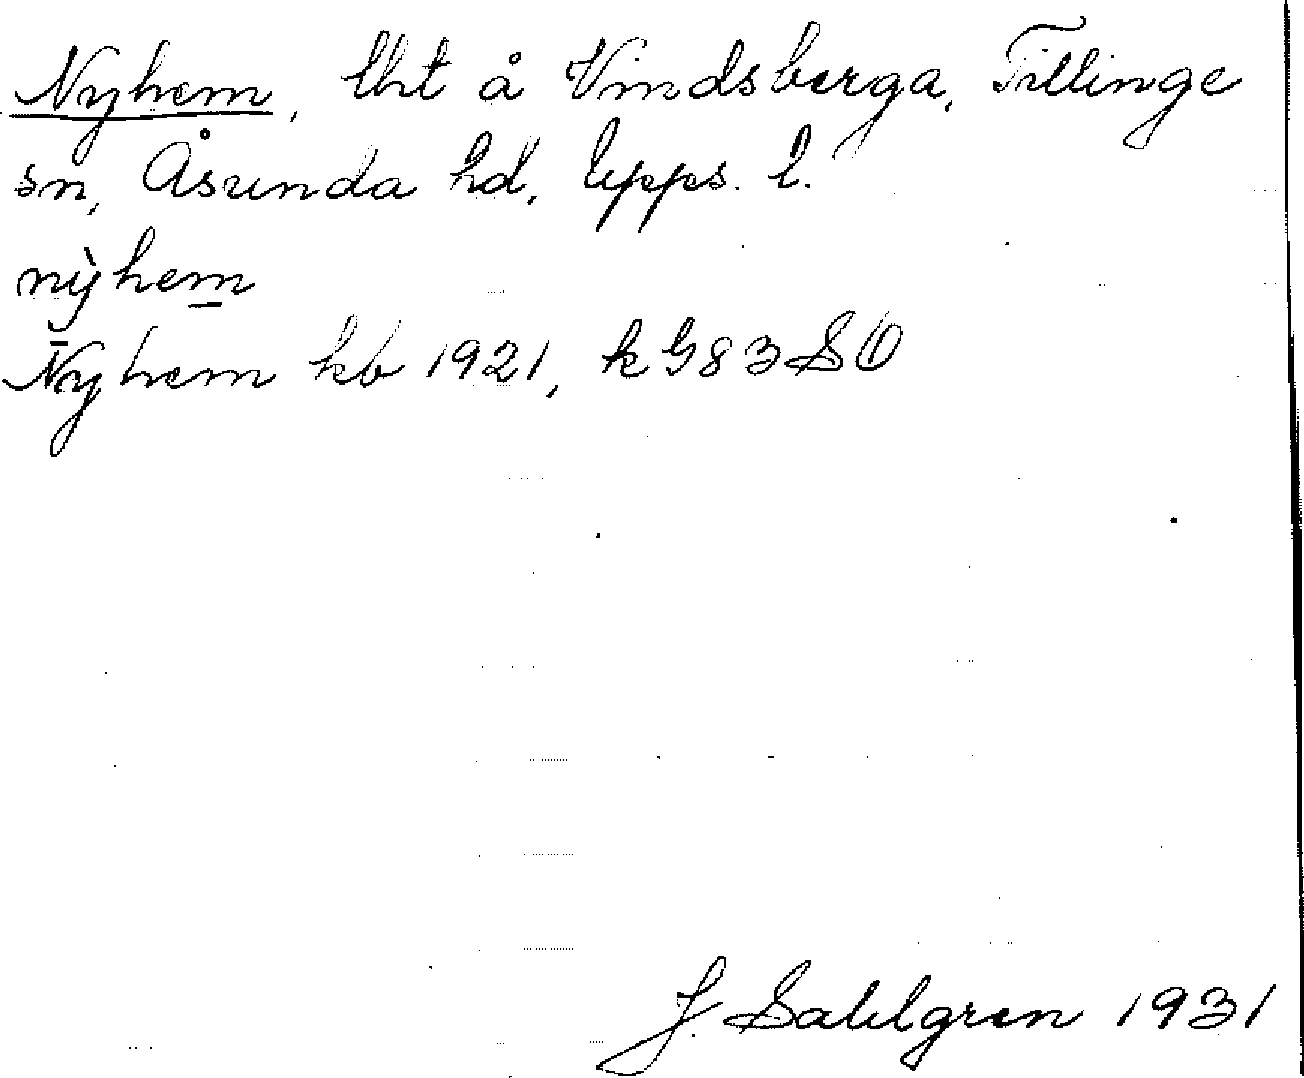 Nyhem, lht å Vindsberga, Tillinge
sn, Åsunda hd, Upps. l.
nỳhem
Nyhem kb 1921, k G83 SO
J. Sahlgren 1931